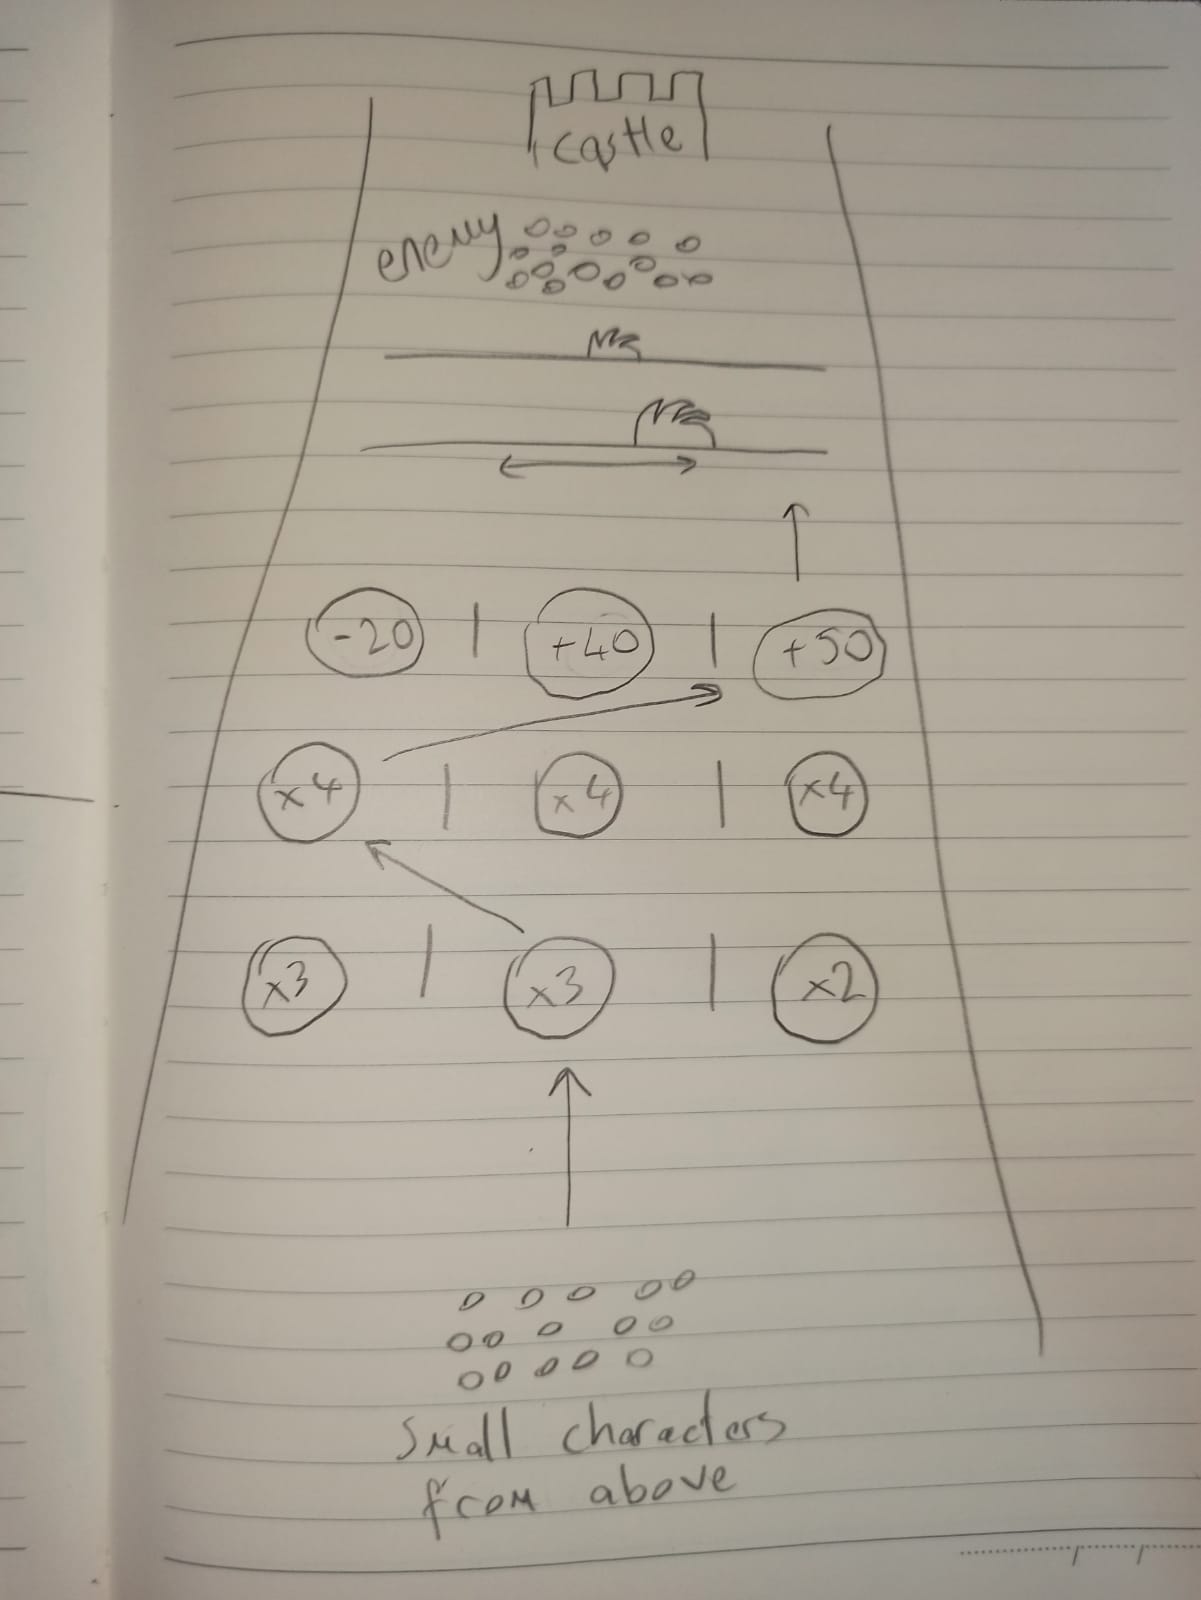 castle
enemy
-20 | +40 | +50
x4 | x4 | x4
x3 | x3 | x2
Small characters
from above